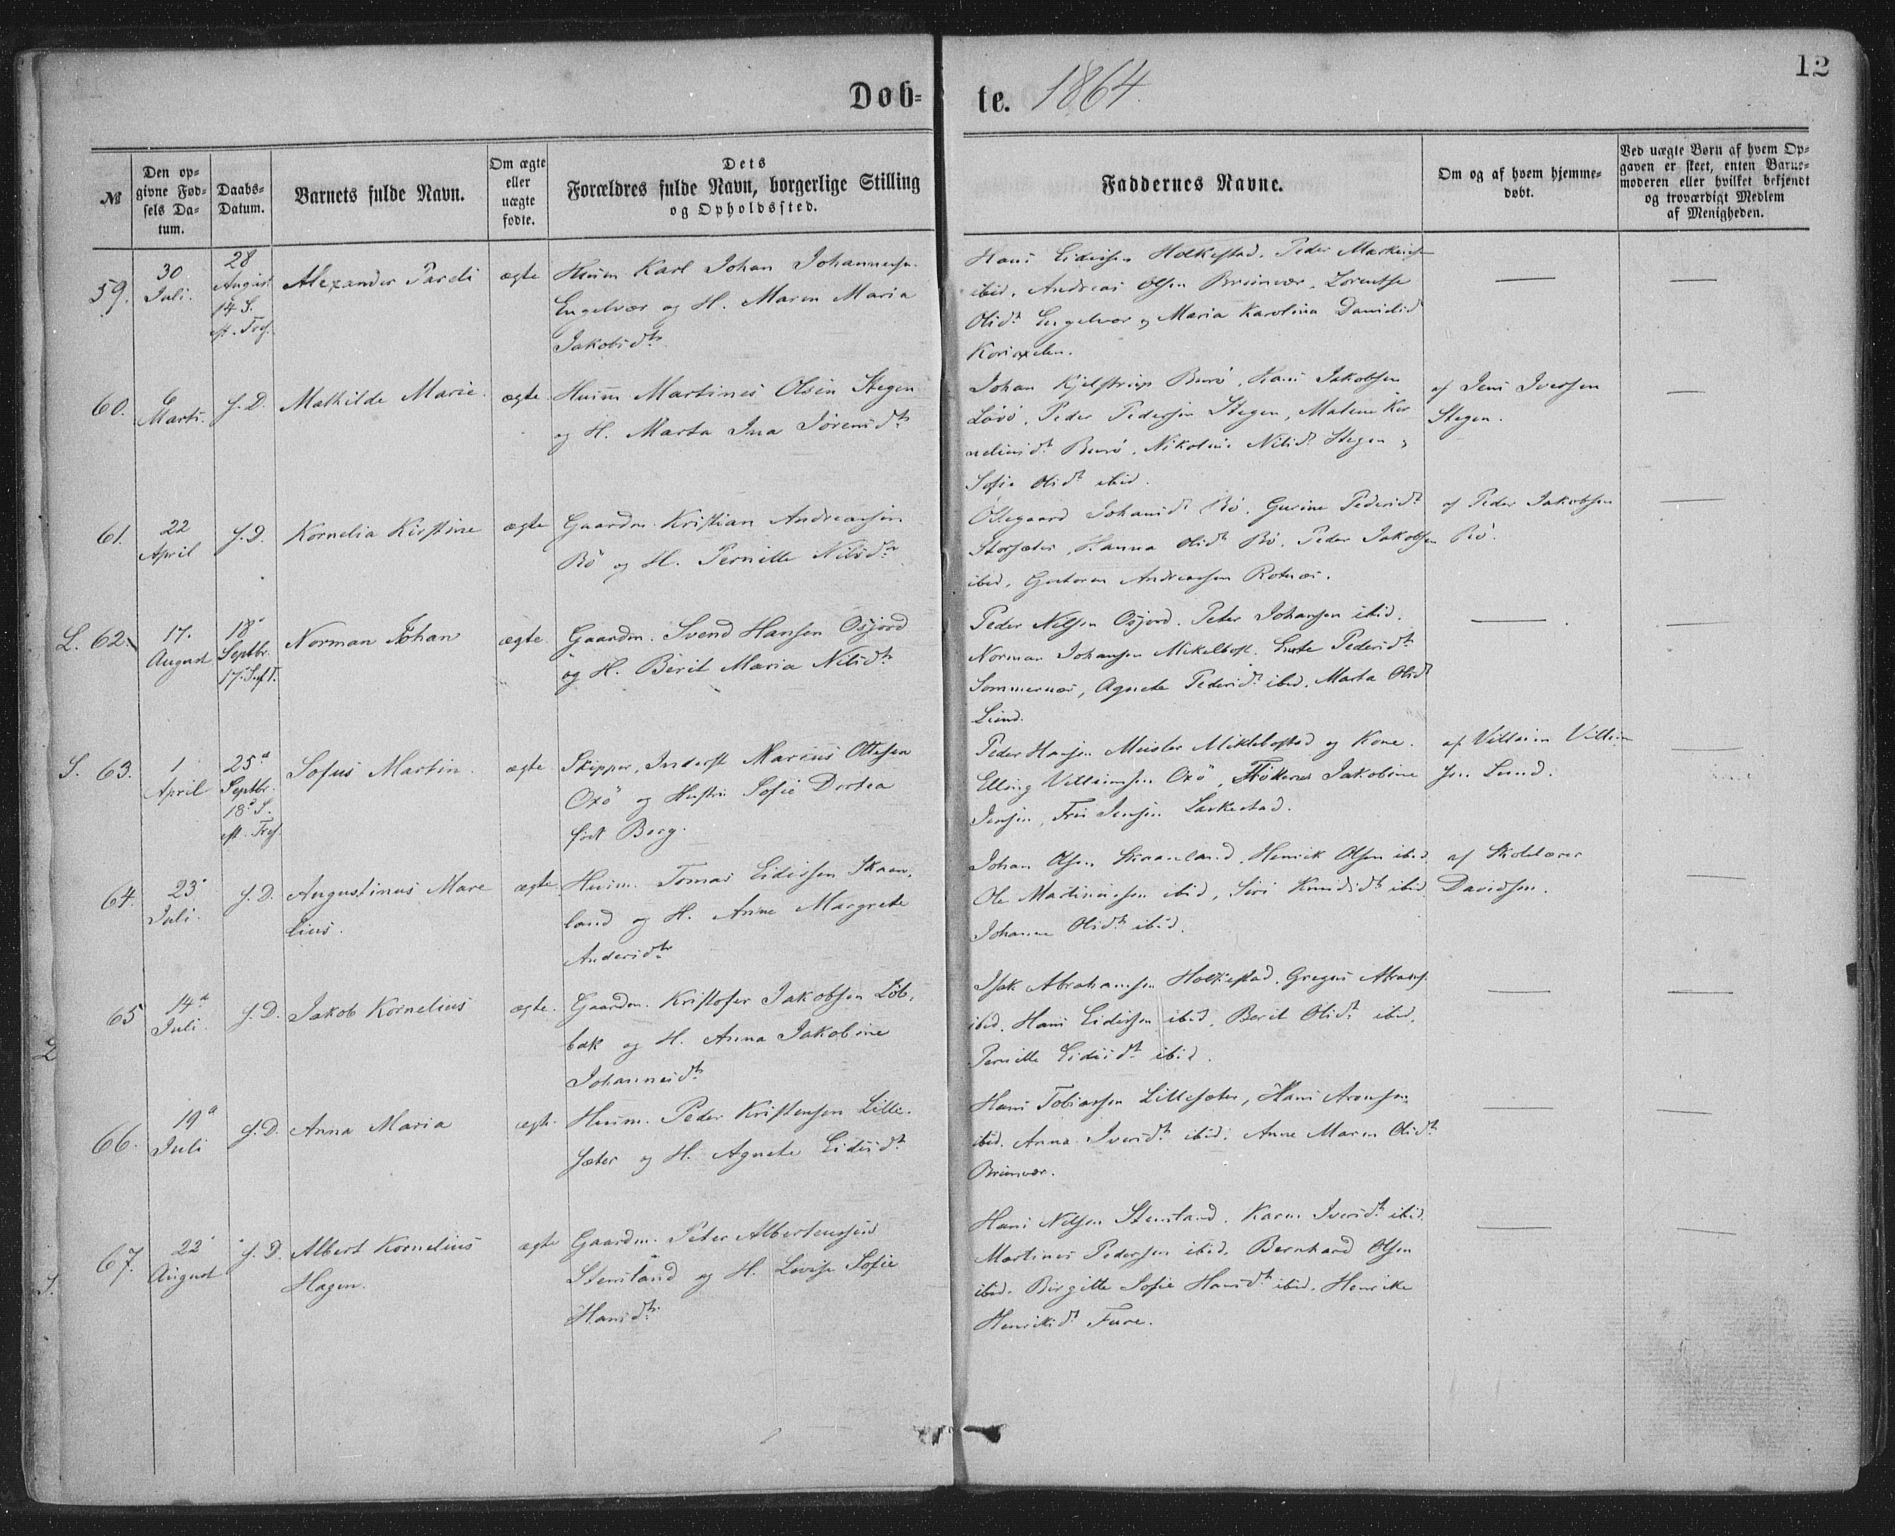 12
Døb-
te. 1864.
№
Den op-
givne Fød-
sels Da-
tum.
Daabs-
Datum.
Barnets fulde Navn.
Om ægte
eller
uægte
fødte.
Dets
Forældres fulde Navn, borgerlige Stilling
og Opholdssted.
Faddernes Navne.
Om og af hvem hjemme-
døbt.
Ved uægte Børn af hvem Op-
gaven er skeet, enten Barne-
moderen eller hvilket bekjendt
og troværdigt Medlem
af Menigheden.
59.
30
Juli.
28
August
14 S.
eft. Tref.
Alexander Pareli
ægte
Huusm Karl Johan Johannessen
Engelvær og H. Maren Maria
Jakobsdtr
Hans Eidissen Holkestad, Peder
ibid. Andreas Olsen Brunvær, Lorentse
Olsdt Engelvær og Maria Karolina Danielsd
60.
Marts.
J. D.
Mathilde Marie.
ægte.
Huusm Martines Olsen Stegen
og H. Marta Ina Sørensdtr
Johan Kjelstrup Burø, Hans Jakobsen
Løvø, Peder Pedersen Stegen, Malene Kor
neliusdt Burø, Nikoline Nilsdt Stegen,
Sofie Olsdt ibid.
af Jens Iversen
Stegen.
61.
22
April
J. D.
Kornelia Kirstine
ægte
Gaardm. Kristian Andreassen
Bø og H. Pernille Nilsdtr
Ottegaard Johansdt Bø. Gurine Pedersdt
Storsæter, Hanna Olsdt Bø. Peder Jakobsen
ibid, Andreassen Rotnæs.
af Peder Jakobsen
Bø.
L. 62.
17.
August
18
Septbr.
17. S. e. T.
Norman Johan
ægte.
Gaardm. Svend Hansen Osjord
og H. Berit Maria Nilsdtr
Peder Nilsen Osjord. Peter Johansen ibid.
Norman Johansen Mikelbost. Pedersdt
Sommernæs, Agnete Pedersdt ibid. Marta Olsdt
Lund.
S. 63.
1
April
25de
Septbr.
18de S.
eft. Tref.
Sofus Martin.
ægte
Skipper, Inderst Marcus Ottesen
Oxø og Hustru Sofie Dortea
født Borg.
Peder Hansen Meister Miklebostad og Kone.
Elling Villumsen Oxø, Frøkener Jakobine
Jensen, Frei Jensen Laskestad.
af Villum Villum
sen Lund.
64.
23
Juli.
J. D.
Augustinus Mare
lius.
ægte
Huusm. Tomas Eidissen Skaan-
land og H. Anne Margrete
Andersdtr
Johan Olsen Skaanland, Henrik Olsen ibid.
Ole Martinussen ibid, Siri Knudsdt ibid
Johanna Olsdt ibid.
af Skolelærer
Davidsen.
65
14de
Juli.
J. D.
Jakob Kornelius
ægte.
Gaardm. Kristofer Jakobsen Løb-
bak og H. Anna Jakobine
Johannesdtr
Isak Abrahamsen Holkestad. Gregus Abrahs
ibid. Hans Eidissen ibid, Berit Olsdt ibid.
Pernille Eidisdt ibid.
66.
19de
Juli
J. D.
Anna Maria
ægte.
Huusm. Peder Kristensen Lille-
sæter og H. Agnete Eidisdt
Hans Tobiassen Lillesæter, Hans Aronsen
ibid. Anna Iversdt ibid. Anne Maren Olsdt
Brunvær.
67.
22
August
J. D.
Albert Kornelius
Hagen.
ægte
Gaardm. Peter Albertensen
Stensland og H. Lovise Sofie
Hansdtr
Hans Nilsen Stensland. Karen Iversdt ibid.
Martines Pedersen ibid. Bernhard Olsen
ibid. Birgitte Sofie Hansdt ibid. Henrike
Henriksdt Fure.